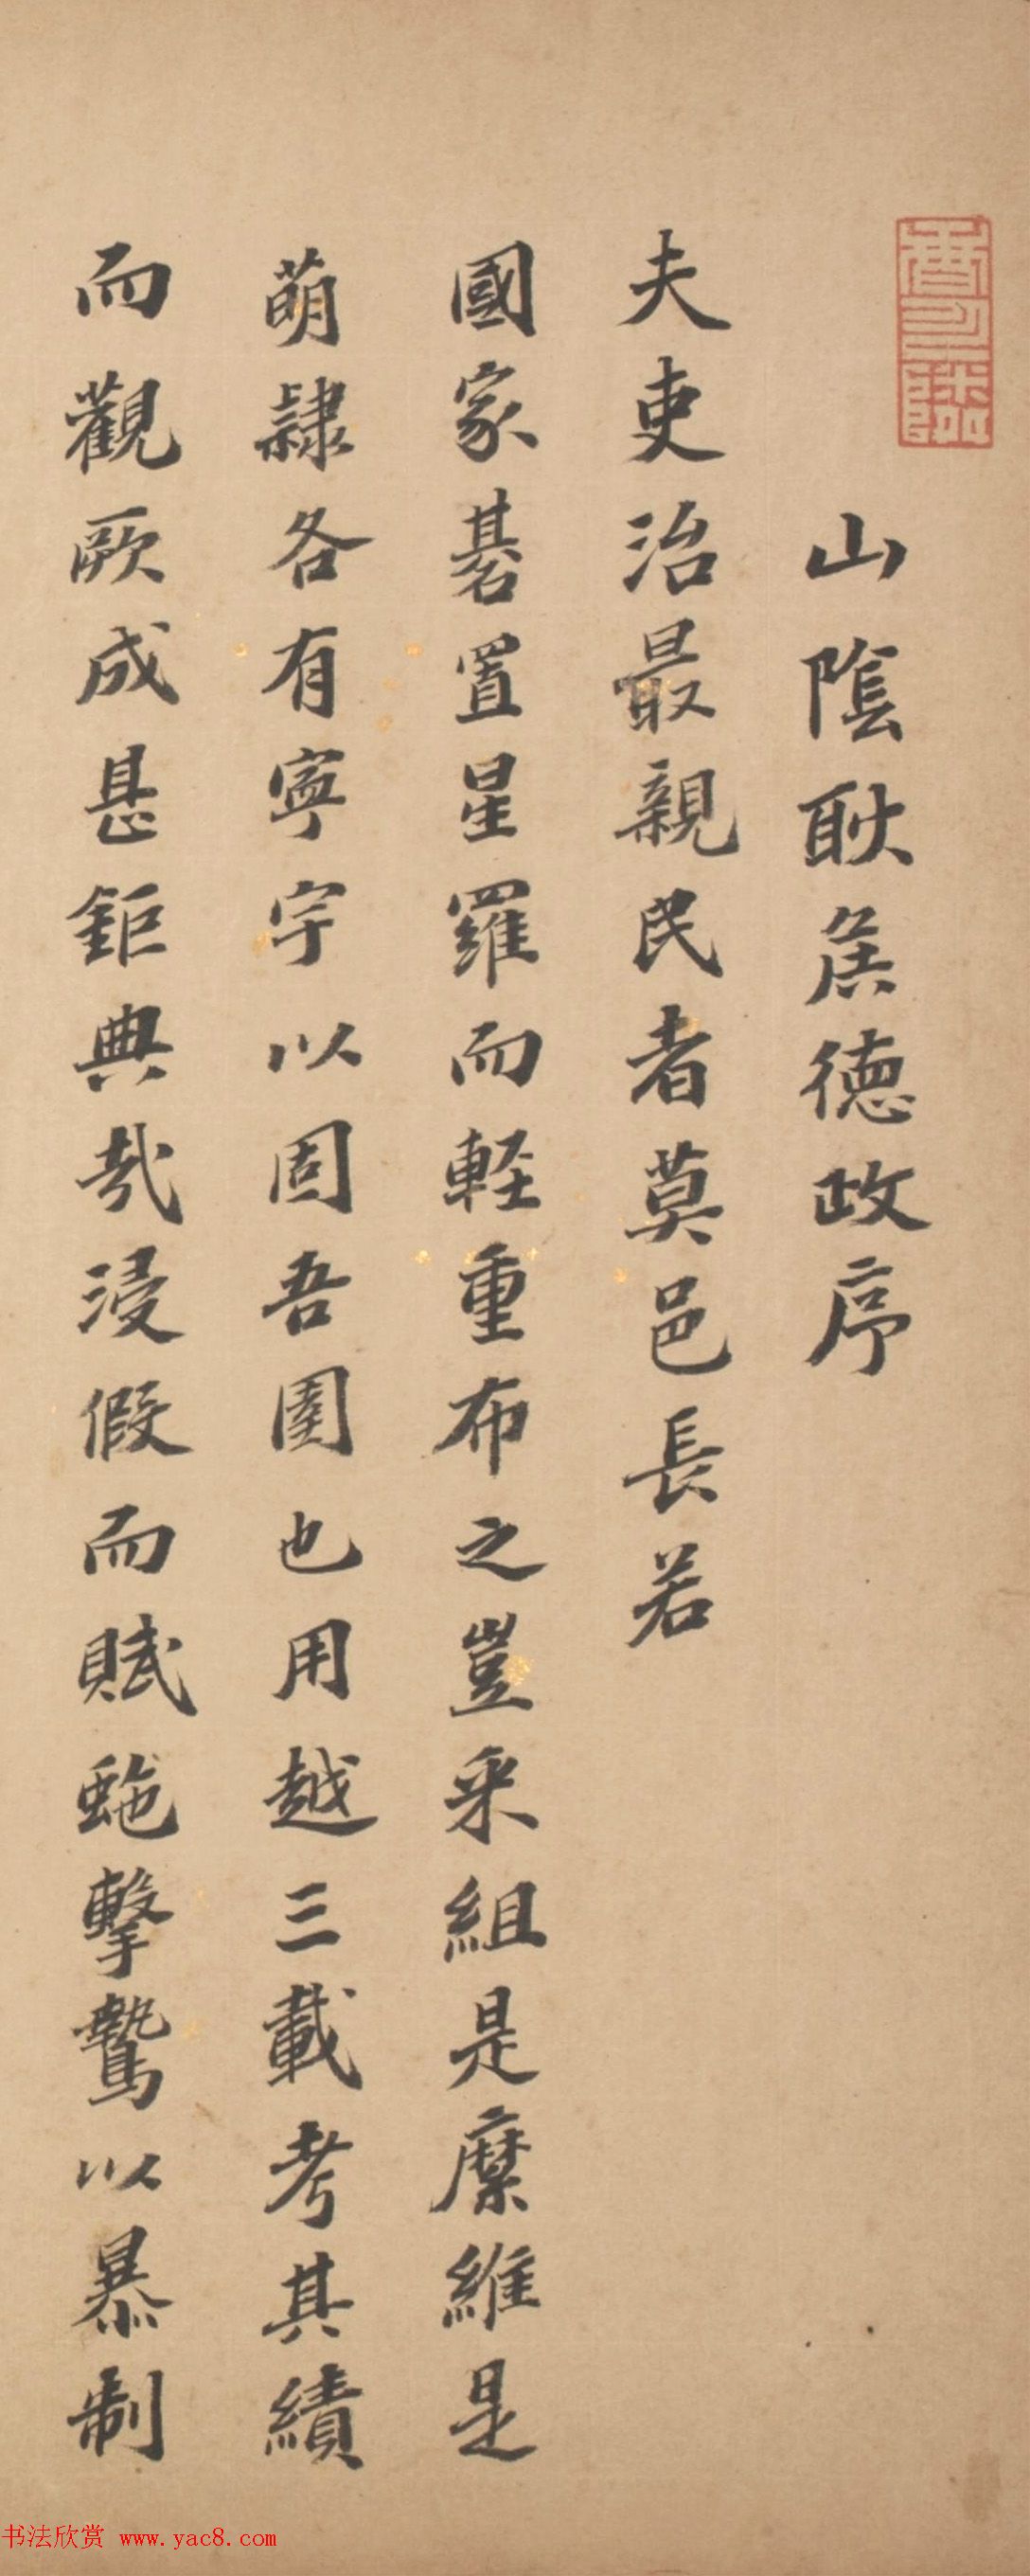 山陰耿侯德政序
夫吏治最親民者莫邑長若
國家碁置星羅而軽重布之豈采組是縻維是
萌隷各有寕宇以固吾圉也用越三載考其績
而觀厥成甚鉅典㢤浸假而賦虵擊鷙以暴制
书法欣赏 www.yac8.com